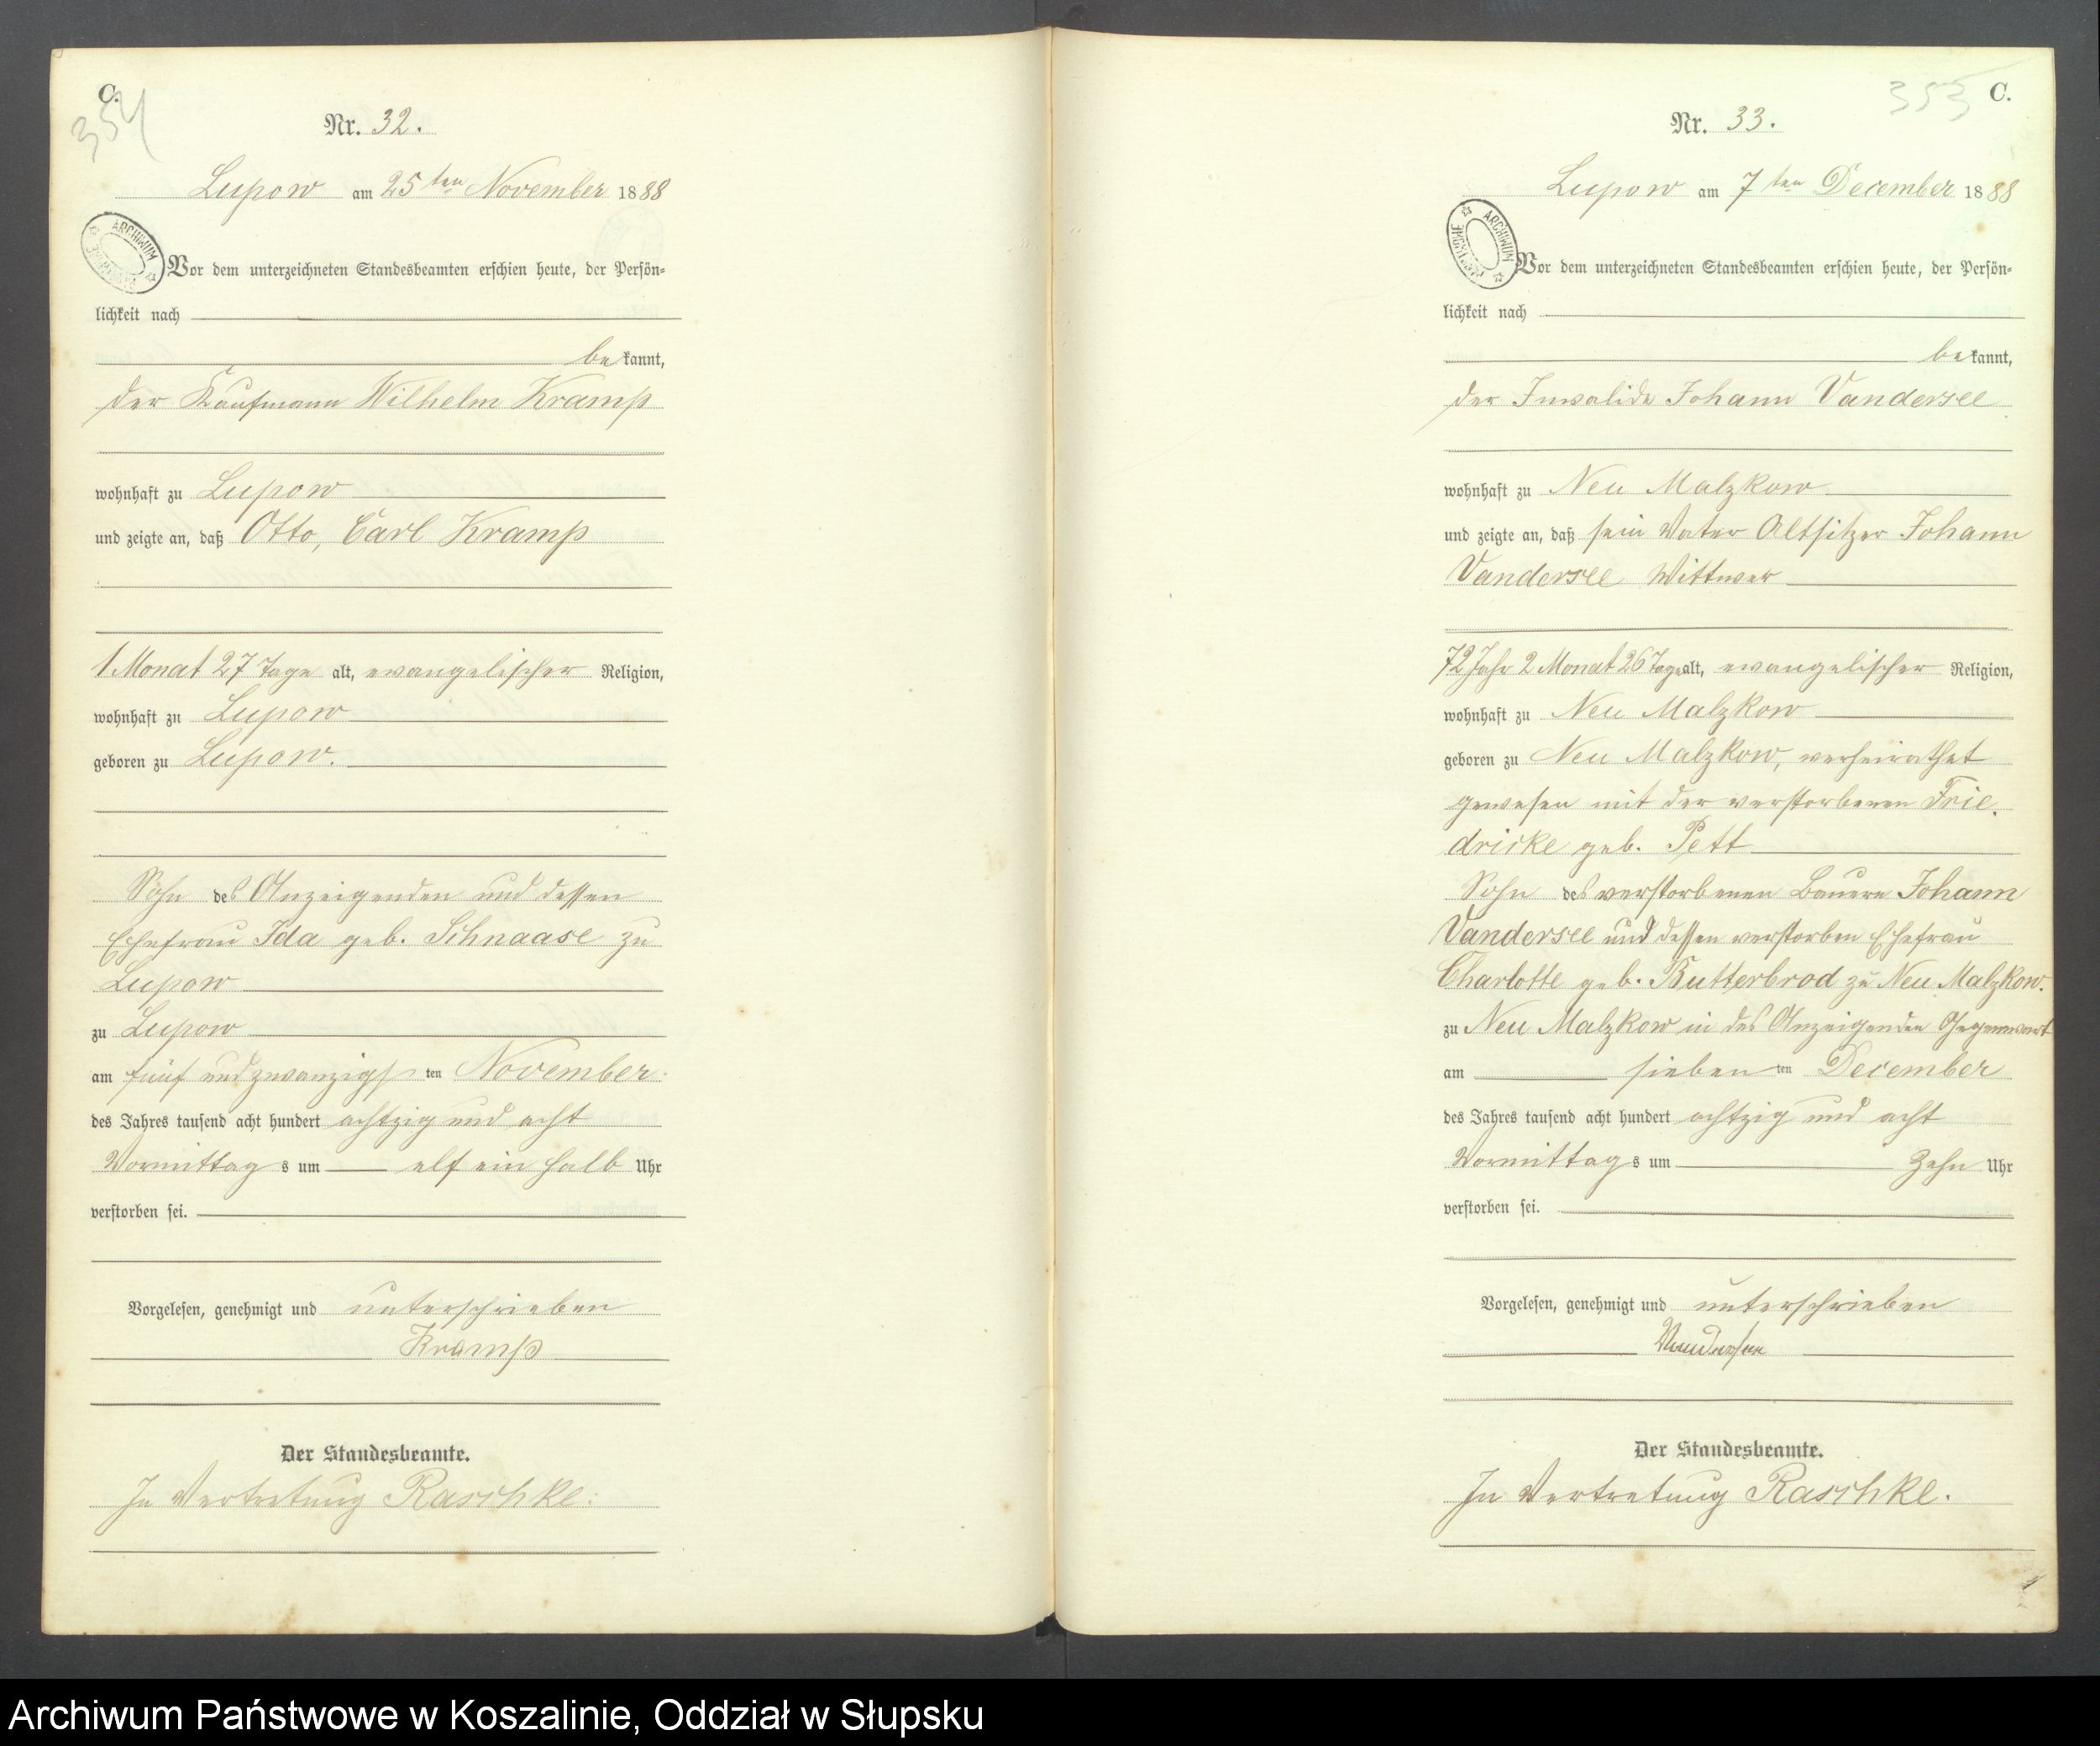 C.
354
Nr. 32.
Lupow am 25ten November 1888
ARCHIWUM
Vor dem unterzeichneten Standesbeamten erschien heute, der Persön-
lichkeit nach
bekannt,
der Kaufmann Wilhelm Kramp
wohnhaft zu Lupow
und zeigte an, daß Otto, Carl Kramp
1 Monat 27 Tage alt, evangelischer Religion,
wohnhaft zu Lupow
geboren zu Lupow.
Sohn des Anzeigenden und dessen
Ehefrau Ida geb. Schnaase zu
Lupow
zu Lupow
am fünf und zwanzigsten November
des Jahres tausend acht hundert achtzig und acht
Vormittags um elf ein halb Uhr
verstorben sei.
Vorgelesen, genehmigt und unterschrieben
Kramp
Der Standesbeamte.
In Vertretung Raschke.
353
C.
Nr. 33.
Lupow am 7ten December 1888
ARCHIWUM
Vor dem unterzeichneten Standesbeamten erschien heute, der Persön-
lichkeit nach
bekannt,
der Invalide Johann Vandersee
wohnhaft zu Neu Malzkow
und zeigte an, daß sein Vater Altsitzer Johann
Vandersee Wittwer
72 Jahr 2 Monat 26 Tage alt, evangelischer Religion,
wohnhaft zu Neu Malzkow
geboren zu Neu Malzkow, verheirathet
gewesen mit der verstorbenen Frie-
dricke geb. Pett
Sohn des verstorbenen Bauern Johann
Vandersee und dessen verstorben Ehefrau
Charlotte geb. Butterbrod zu Neu Malzkow.
zu Neu Malzkow in des Anzeigenden Gegenwart
am siebenten December
des Jahres tausend acht hundert achtzig und acht
Vormittags um Zehn Uhr
verstorben sei.
Vorgelesen, genehmigt und unterschrieben
Vandersee
Der Standesbeamte.
In Vertretung Raschke.
Archiwum Państwowe w Koszalinie, Oddział w Słupsku